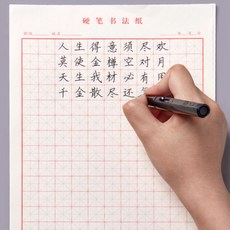 硬笔书法纸
人生得意须尽欢
莫使金樽空对月
天生我材必有用
千金散尽还